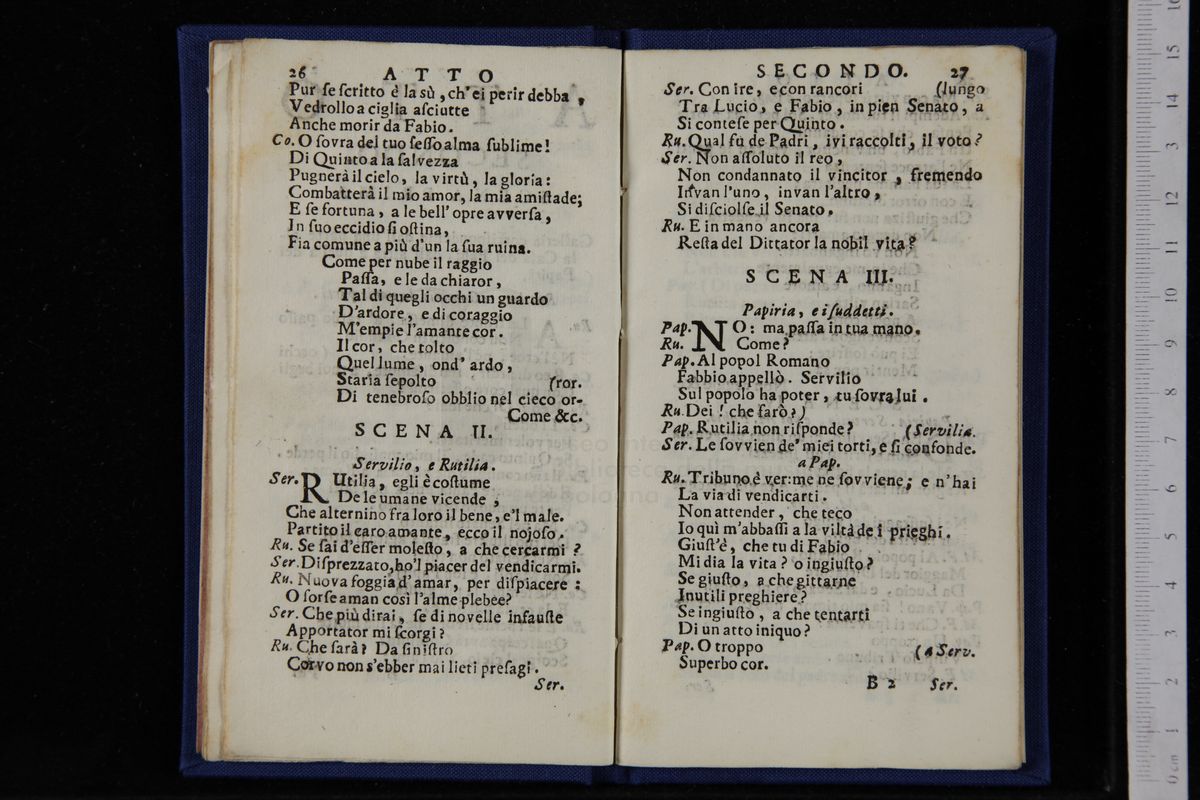 26 ATTO
Pur ſe ſcritto è la sù, ch'ei perir debba,
Vedrollo a ciglia aſciutte
Anche morir da Fabio.
Co. O ſovra del tuo ſeſſo alma ſublime!
Di Quinto a la ſalvezza
Pugnerà il cielo, la virtù, la gloria:
Combatterà il mio amor, la mia amiſtade;
E ſe fortuna, a le bell' opre avverſa,
In ſuo eccidio ſi oſtina,
Fia comune a più d'un la ſua ruina.
Come per nube il raggio
Paſſa, e le da chiaror,
Tal di quegli occhi un guardo
D'ardore, e di coraggio
M'empie l'amante cor.
Il cor, che tolto
Quel lume, ond' ardo,
Staria ſepolto (ror.
Di tenebroſo obblio nel cieco or-
Come &c.
SCENA II.
Servilio, e Rutilia.
Ser. RUtilia, egli è coſtume
De le umane vicende,
Che alternino fra loro il bene, e'l male.
Partito il caro amante, ecco il nojoſo.
Ru. Se ſai d'eſſer moleſto, a che cercarmi?
Ser. Diſprezzato, ho'l piacer del vendicarmi.
Ru. Nuova foggia d'amar, per diſpiacere:
O forſe aman così l'alme plebee?
Ser. Che più dirai, ſe di novelle infauſte
Apportator mi ſcorgi?
Ru. Che ſarà? Da ſiniſtro
Corvo non s'ebber mai lieti preſagi.
Ser.
SECONDO. 27
Ser. Con ire, e con rancori (lungo
Tra Lucio, e Fabio, in pien Senato, a
Si conteſe per Quinto.
Ru. Qual fu de Padri, ivi raccolti, il voto?
Ser. Non aſſoluto il reo,
Non condannato il vincitor, fremendo
Invan l'uno, invan l'altro,
Si diſciolſe il Senato.
Ru. E in mano ancora
Reſta del Dittator la nobil vita?
SCENA III.
Papiria, e i ſuddetti.
Pap. NO: ma paſſa in tua mano.
Ru. Come?
Pap. Al popol Romano
Fabbio appellò. Servilio
Sul popolo ha poter, tu ſovra lui.
Ru. Dei! che farò?)
Pap. Rutilia non riſponde? (Servilia.
Ser. Le ſovvien de' miei torti, e ſi confonde.
a Pap.
Ru. Tribuno è ver: me ne ſovviene; e n'hai
La via di vendicarti.
Non attender, che teco
Io quì m'abbaſſi a la viltà de i prieghi.
Giuſt'è, che tu di Fabio
Mi dia la vita? o ingiuſto?
Se giuſto, a che gittarne
Inutili preghiere?
Se ingiuſto, a che tentarti
Di un atto iniquo?
Pap. O troppo (a Serv.
Superbo cor.
B 2 Ser.